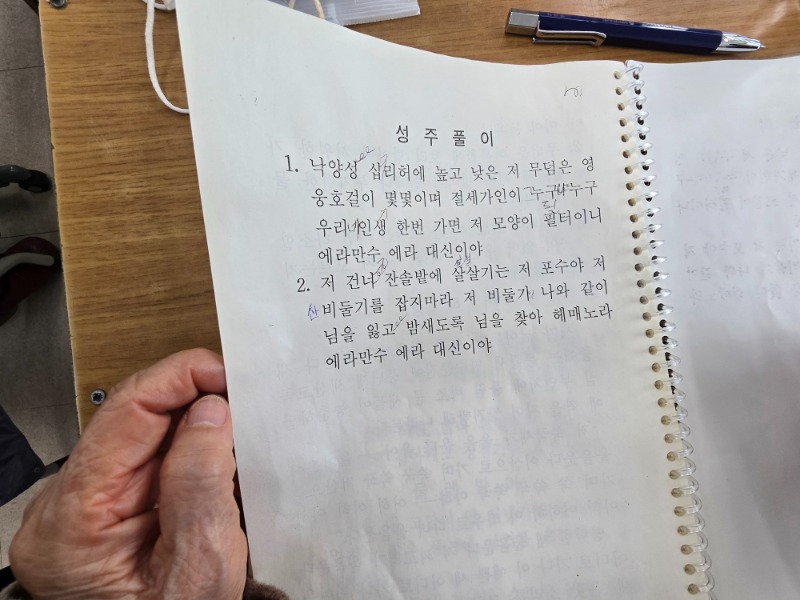 성주풀이
1. 낙양성 십리허에 높고 낮은 저 무덤은 영
웅호걸이 몇몇이며 절세가인이 누구냐누구
우리네인생 한번 가면 저 모양이 필터이니
에라만수 에라 대신이야
2. 저 건너 잔솔밭에 살살기는 저 포수야 저
산비둘기를 잡지마라 저 비둘기 나와 같이
님을 잃고 밤새도록 님을 찾아 헤매노라
에라만수 에라 대신이야